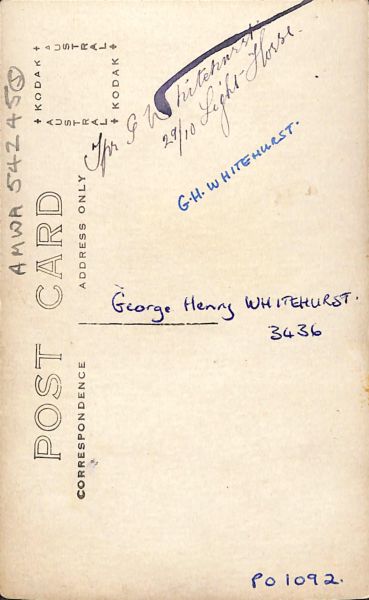 KODAK
AUSTRAL
AUSTRAL
KODAK
AMWA 54245 (5)
POST CARD
ADDRESS ONLY
CORRESPONDENCE
Tpr G Whitehurst.
29/10 Light Horse.
G.H. WHITEHURST.
George Henry WHITEHURST.
3436
PO1092.